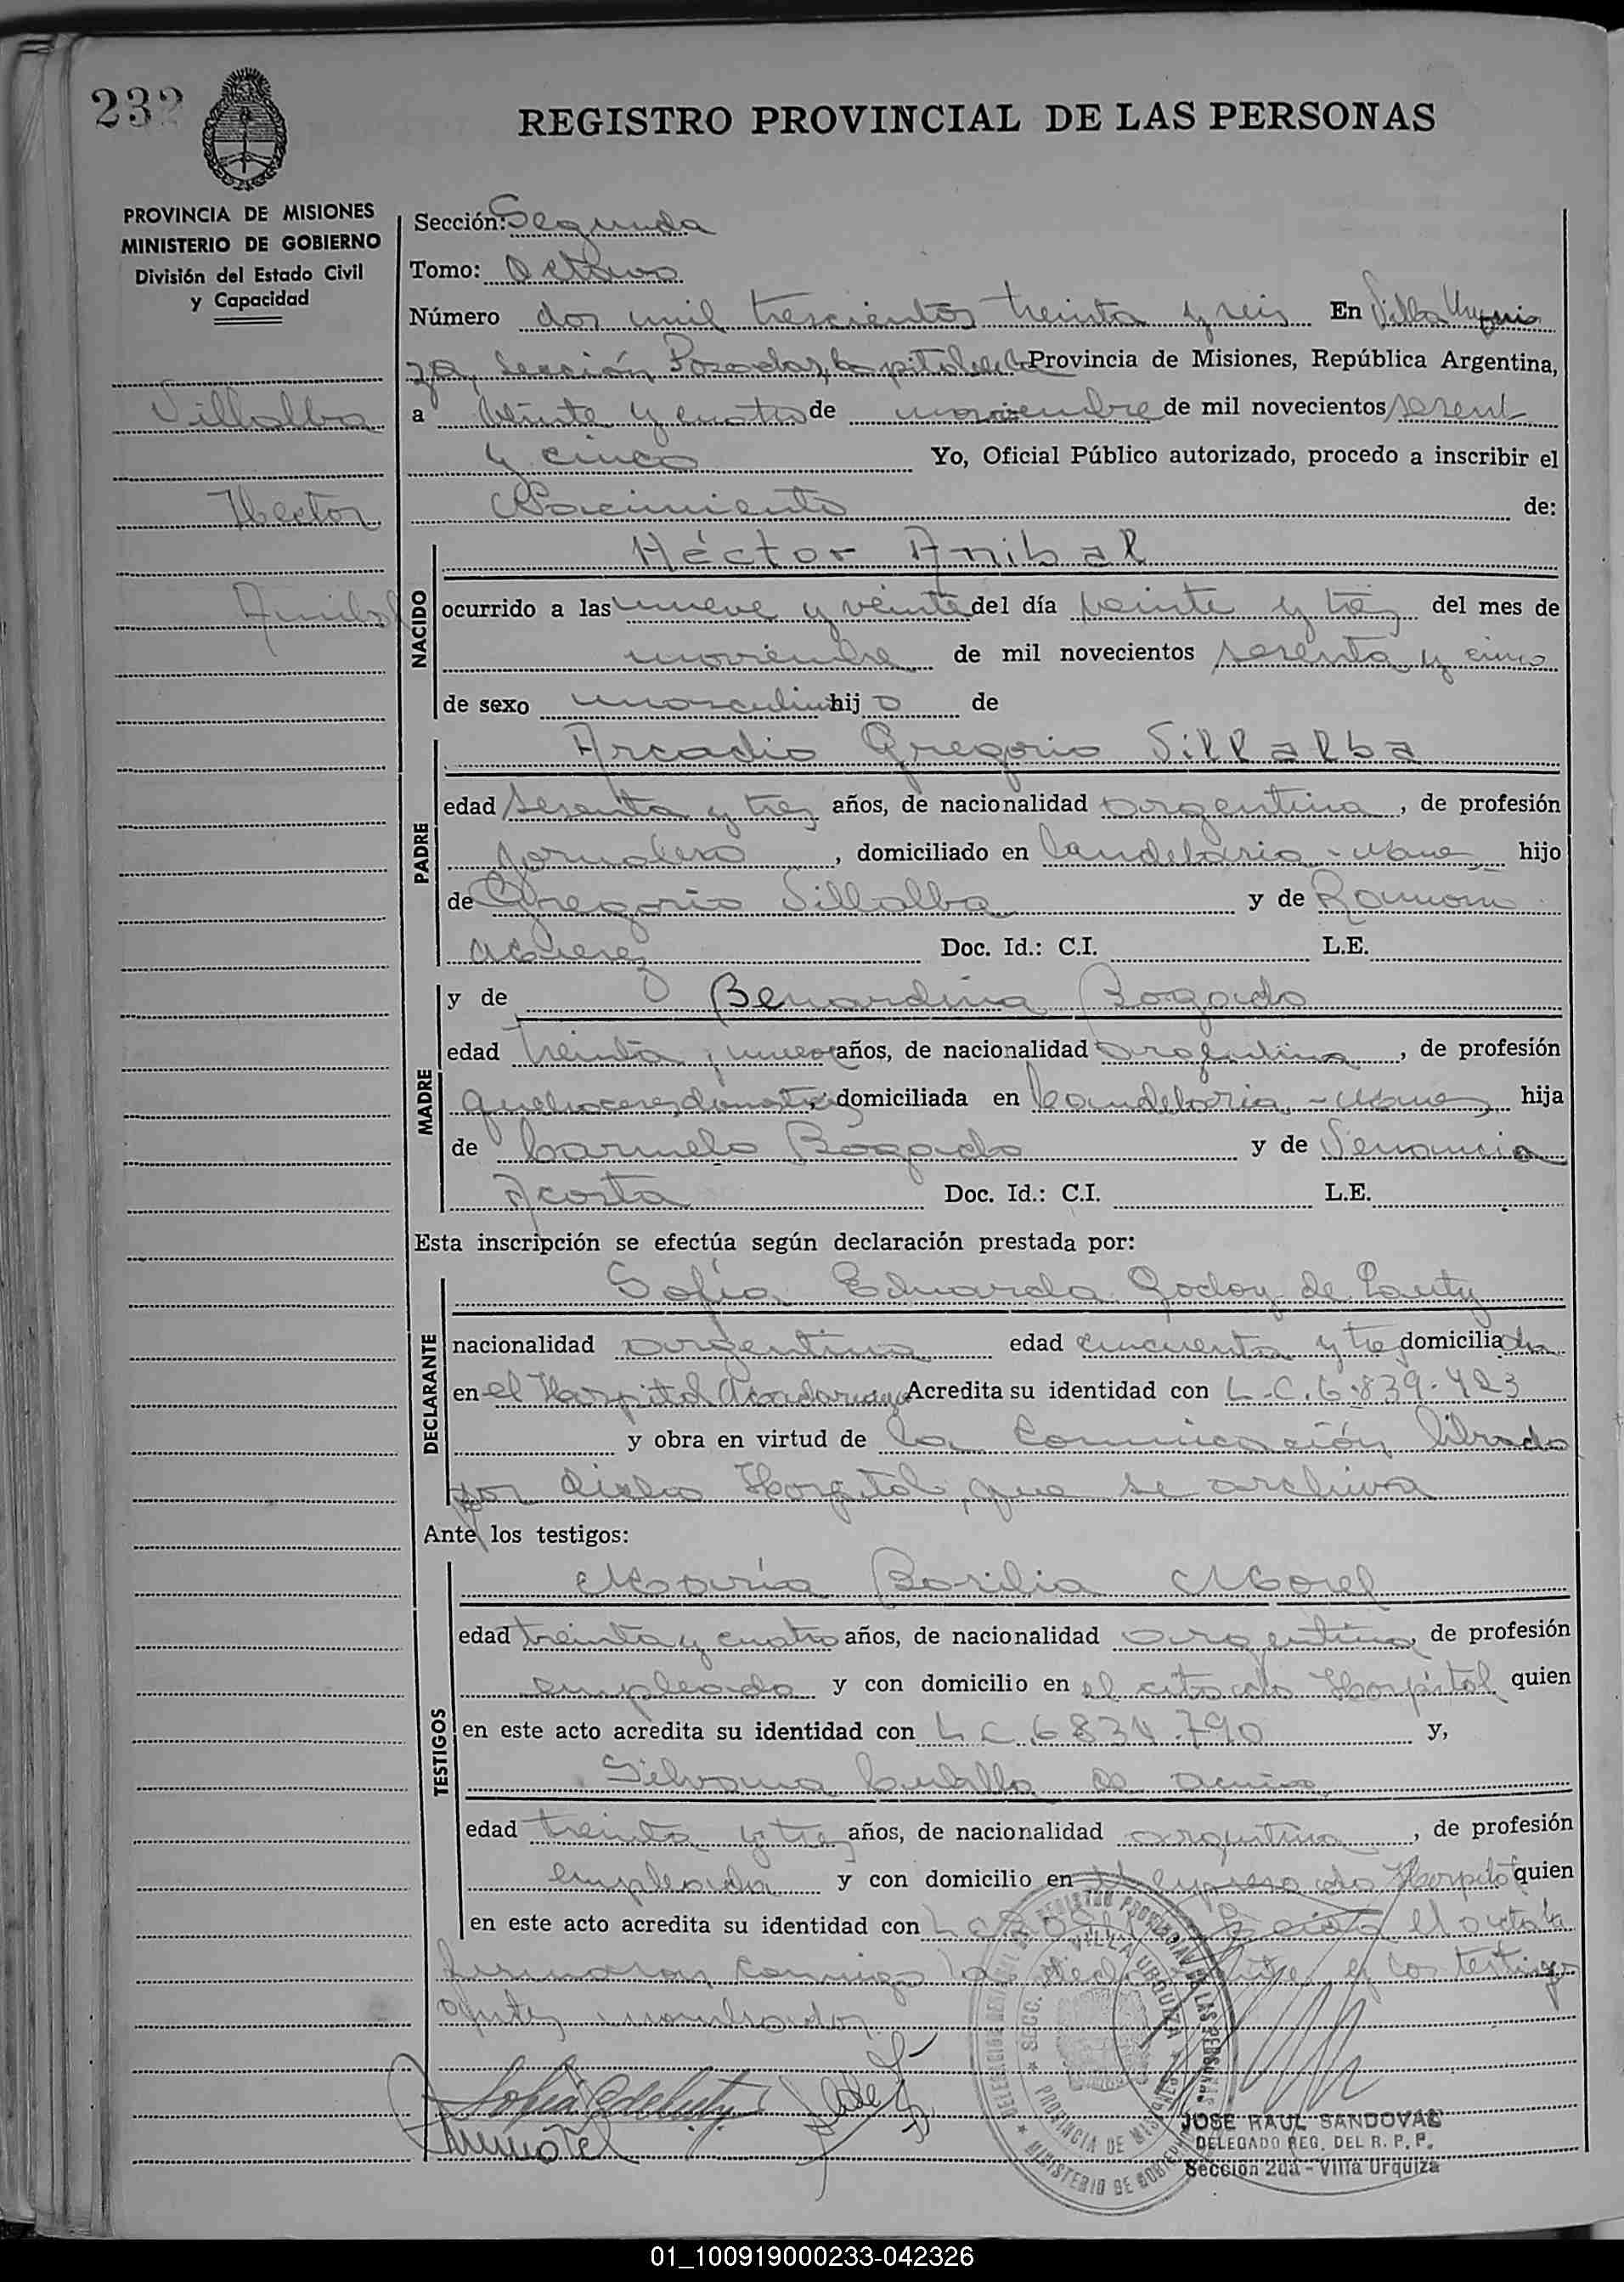 232
REGISTRO PROVINCIAL DE LAS PERSONAS
PROVINCIA DE MISIONES
MINISTERIO DE GOBIERNO
División del Estado Civil
y Capacidad
Villalba
Hector
Anibal
Sección: Segunda
Tomo: Octavo
Número dos mil trescientos treinta y seis En Villa Urqui
za, Sección Posadas, Capital de la Provincia de Misiones, República Argentina,
a veinte y cuatro de noviembre de mil novecientos sesent
y cinco Yo, Oficial Público autorizado, procedo a inscribir el
Nacimiento de:
NACIDO
Héctor Anibal
ocurrido a las nueve y veinte del día veinte y tres del mes de
noviembre de mil novecientos sesenta y cinco
de sexo masculino hijo de
PADRE
Arcadio Gregorio Villalba
edad sesenta y tres años, de nacionalidad argentina, de profesión
jornalero, domiciliado en Candelaria - Mnes, hijo
de Gregorio Villalba y de Ramona
Doc. Id.: C.I. L.E.
MADRE
y de Bernardina Bogado
edad treinta y nueve años, de nacionalidad argentina, de profesión
quehaceres domésticos, domiciliada en Candelaria, - Mnes, hija
de Carmelo Bogado y de Venancia
Acosta Doc. Id.: C.I. L.E.
Esta inscripción se efectúa según declaración prestada por:
DECLARANTE
Sofía Eduarda Godoy de Lauty
nacionalidad argentina edad cincuenta y tres domiciliada
en el Hospital Acredita su identidad con L.C. 6.839.423
y obra en virtud de la Comunicación librada
por dicho Hospital, que se archiva
Ante los testigos:
TESTIGOS
María Basilia Morel
edad treinta y cuatro años, de nacionalidad argentina, de profesión
empleada y con domicilio en el citado Hospital quien
en este acto acredita su identidad con L C 6831.790 y,
Silvana de
edad treinta y tres años, de nacionalidad argentina, de profesión
empleada y con domicilio en el expresado Hospital quien
en este acto acredita su identidad con L C Leída el acta la
firmaron conmigo la declarante y los testigos
antes nombrados
DELEGACION REGISTRO PROVINCIAL DE LAS PERSONAS
SECC. VILLA URQUIZA
PROVINCIA DE MISIONES
MINISTERIO DE GOBIERNO
JOSE RAUL SANDOVAL
DELEGADO REG. DEL R. P. P.
Sección 2da - Villa Urquiza
01_100919000233-042326